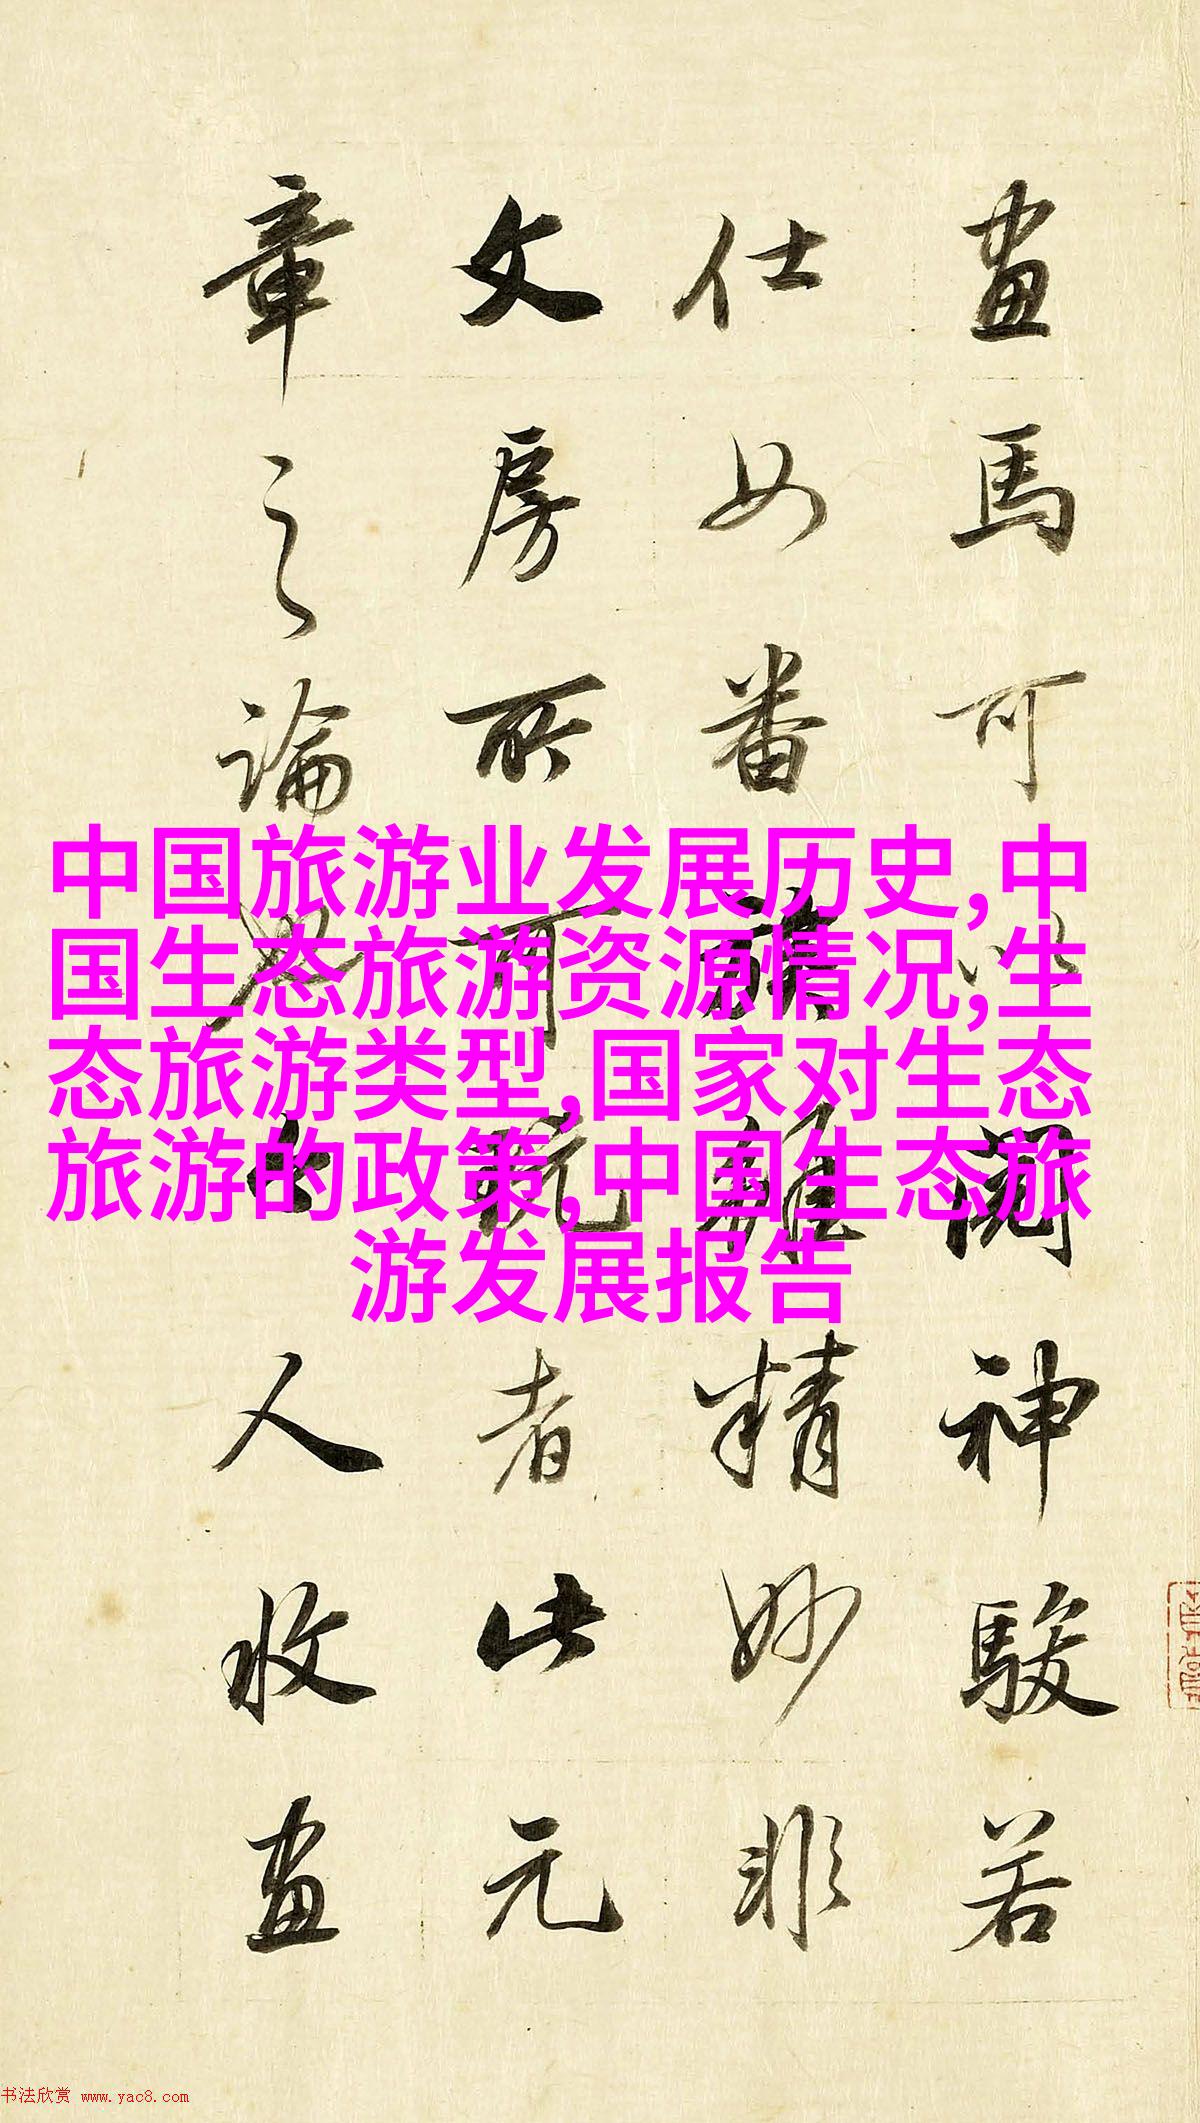 中国旅游业发展历史,中
国生态旅游资源情况,生
态旅游类型,国家对生态
旅游的政策,中国生态旅
游发展报告
畫馬可以閱神駿若
仕女番族雖精妙非
文房所可玩者此元
章之論與人收畫
书法欣赏 www.yac8.com